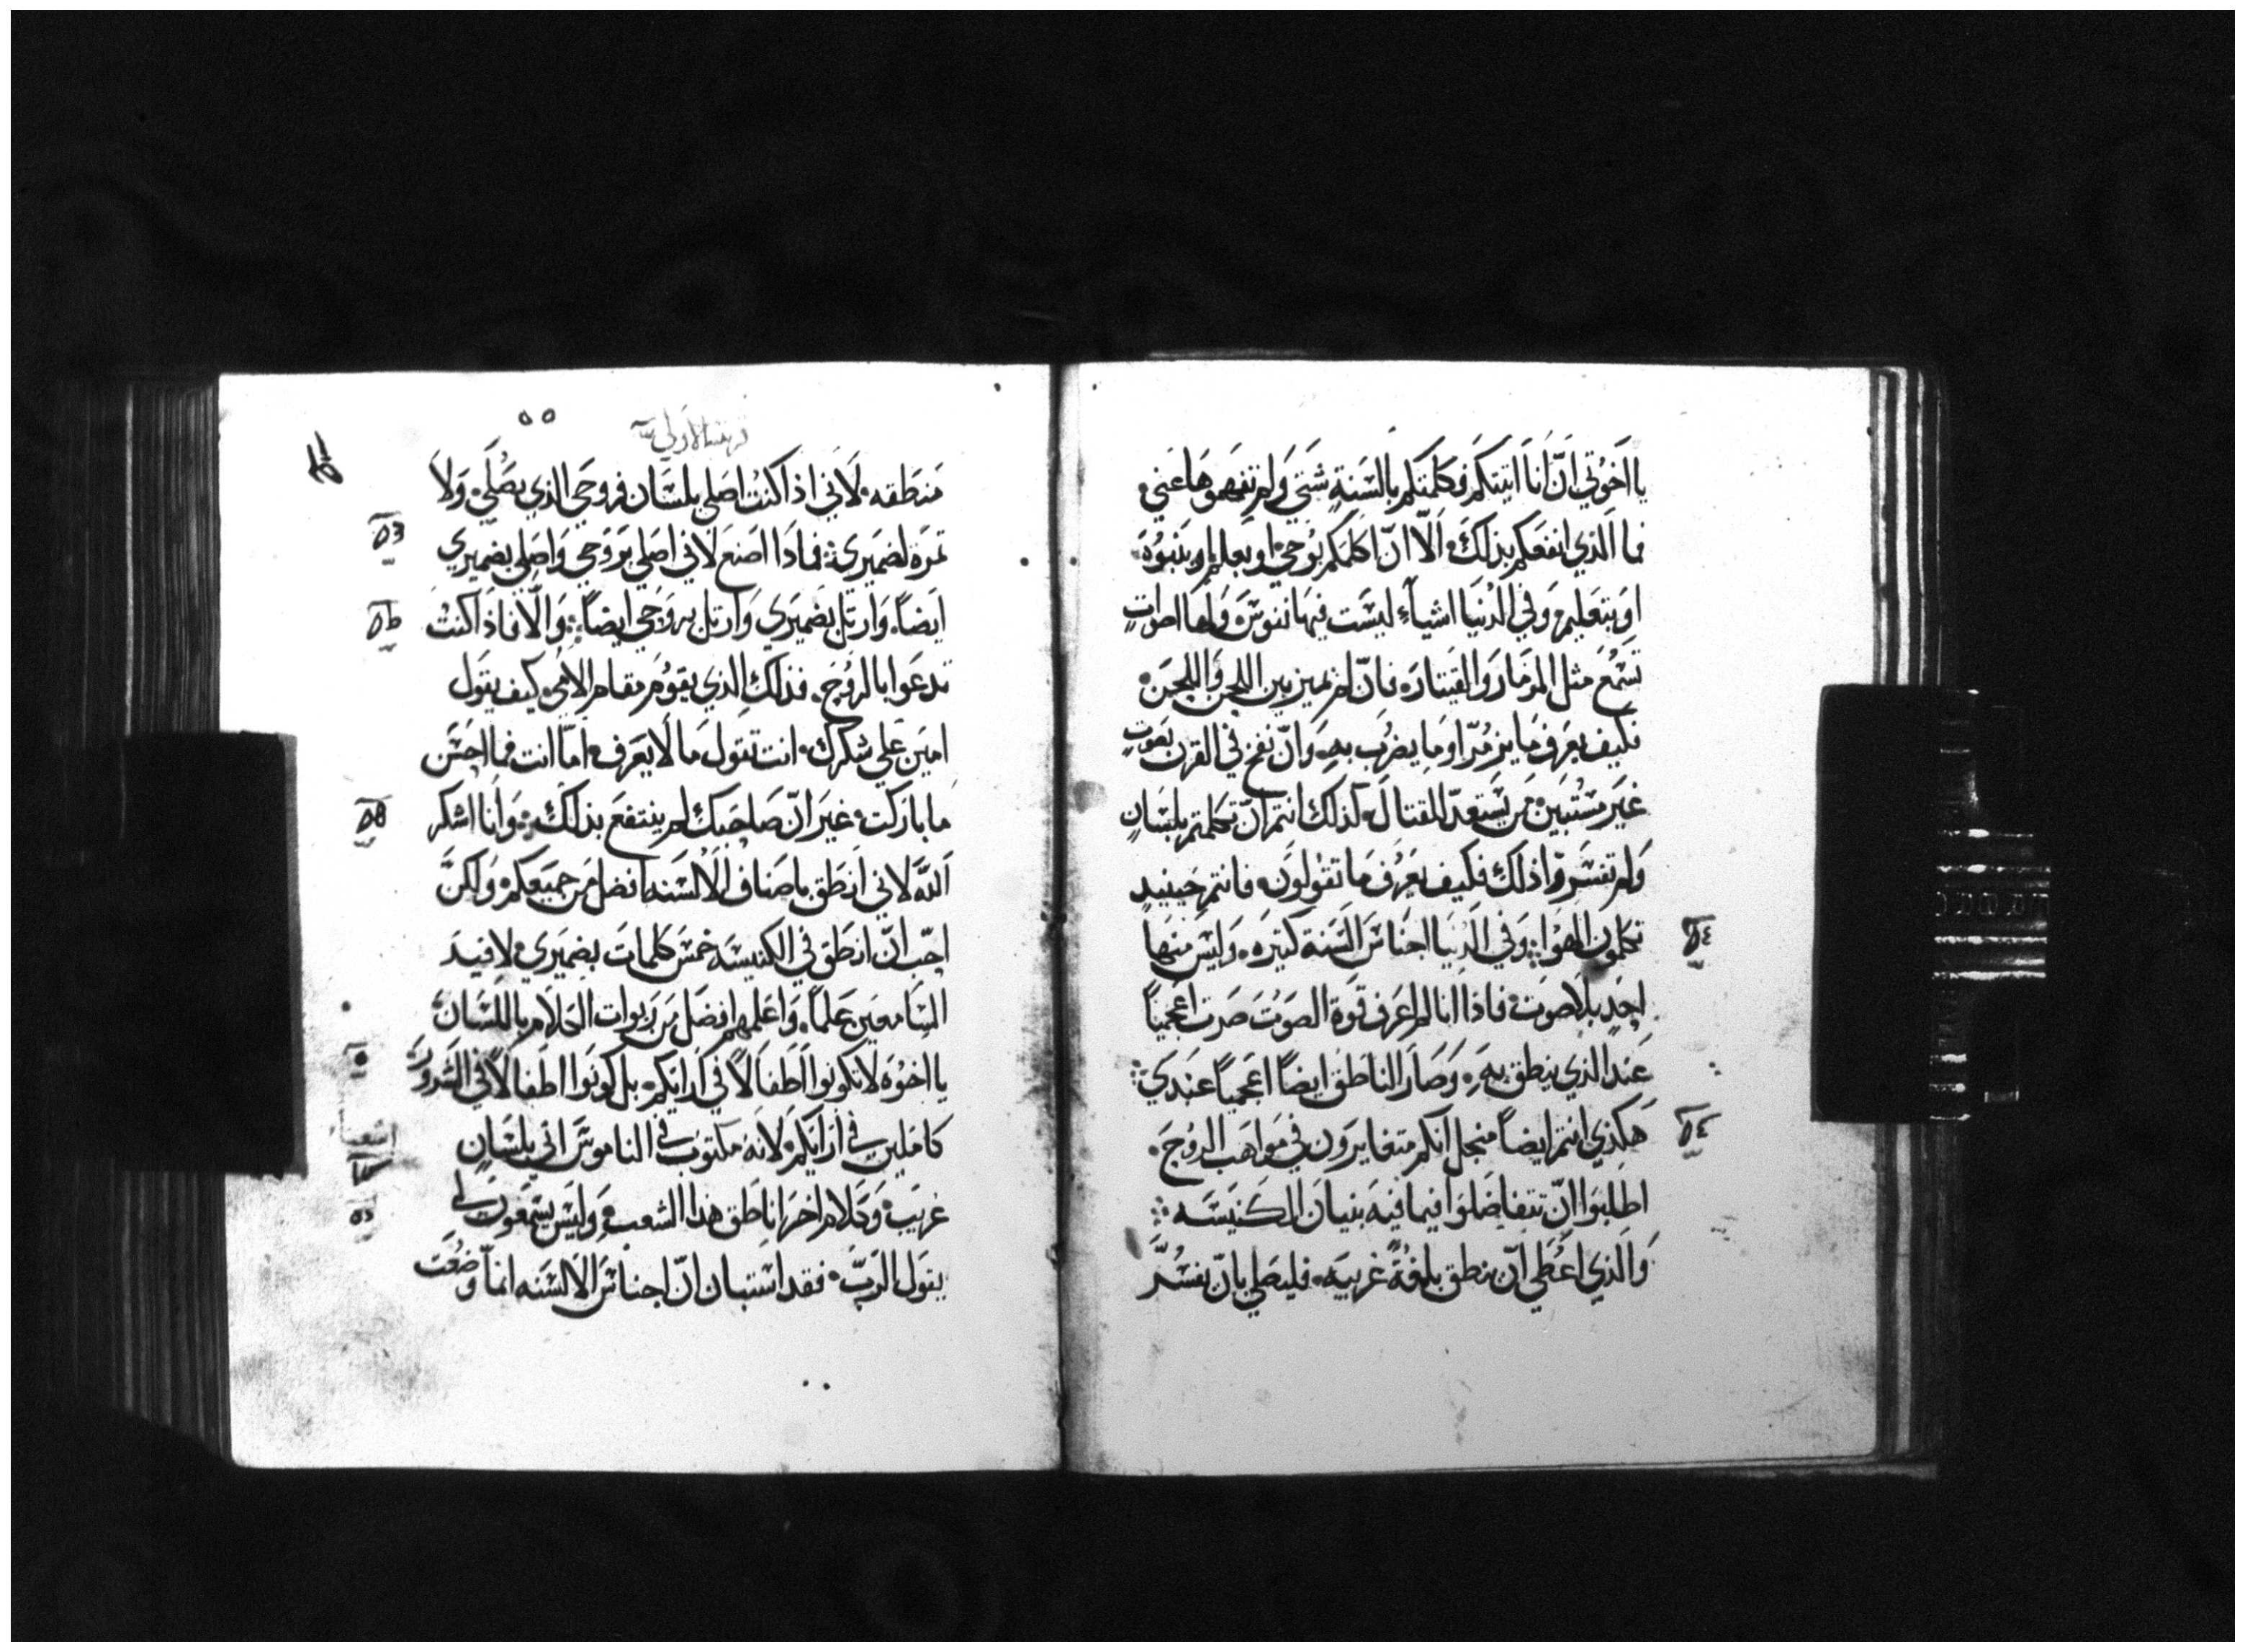 يا اخوتي انّ انا اتيتكم فكلمتكم بالسنة شتي ولم تفهموها عني
فما الذي انفعكم بذلك الّا انّ اكلمكم بوحي او بعلم او بنبوه
او بتعليم وفي الدنيا اشياء ليست فيها نفوس ولها اصوات
تسمع مثل المزمار والقيتاره فانّ لم تميز بين اللحن واللحن
فكيف يعرف ما يزمّر او ما يضرب به وانّ نفخ في القرن بصوتٍ
غير مستبين من يستعدّ للقتال كذلك انتم انّ تكلمتم بلسانٍ
ولم تفسروا ذلك فكيف يعرف ما تقولون فانتم حينيد
تكلمون الهوا وفي الدنيا اجناس السنة كتيره وليس منها
احد بلا صوت فاذا انا لم اعرف قوة الصوت صرت اعجمياً
عند الذي ينطق به وصار الناطق ايضاً اعجمياً عندي
هكذي انتم ايضاً منجل انكم متغايرون في مواهب الروح
اطلبوا انّ تتفاضلوا فيما فيه بنيان الكنيسه
والذي اعطي انّ ينطق بلغةٍ غريبه فليصلي بانّ يفسّر
٥٥
منطقه لاني اذا كنت اصلي بلسان فروحي الذي يصلي ولا
تمره لضميري فماذا اصنع لاني اصلي بروحي واصلي بضميري
ايضاً وارتل بضميري وارتل بروحي ايضاً والّا فاذا كنت
تدعوا بالروح فذلك الذي يقوم مقام الامي كيف يقول
امين علي شكرك انت تقول ما لا يعرف امّا انت فما احسن
ما باركت غير انّ صاحبك لم ينتفع بذلك وانا اشكر
الله لاني انطق باصناف الالسنه افضل من جميعكم ولكن
احب انّ انطق في الكنيسه خمس كلمات بضميري لافيد
السامعين علماً واعلمهم افضل من ربوات الكلام باللسان
يا اخوه لا تكونوا اطفالاً في ارايكم بل كونوا اطفالاً في الشرور
كاملين في ارايكم لانه مكتوب في الناموس اني بلسانٍ
غريب وكلام اخر اناطق هذا الشعب وليس يسمعون لي
يقول الرب فقد استبان انّ اجناس الالسنه انمّا وضعت